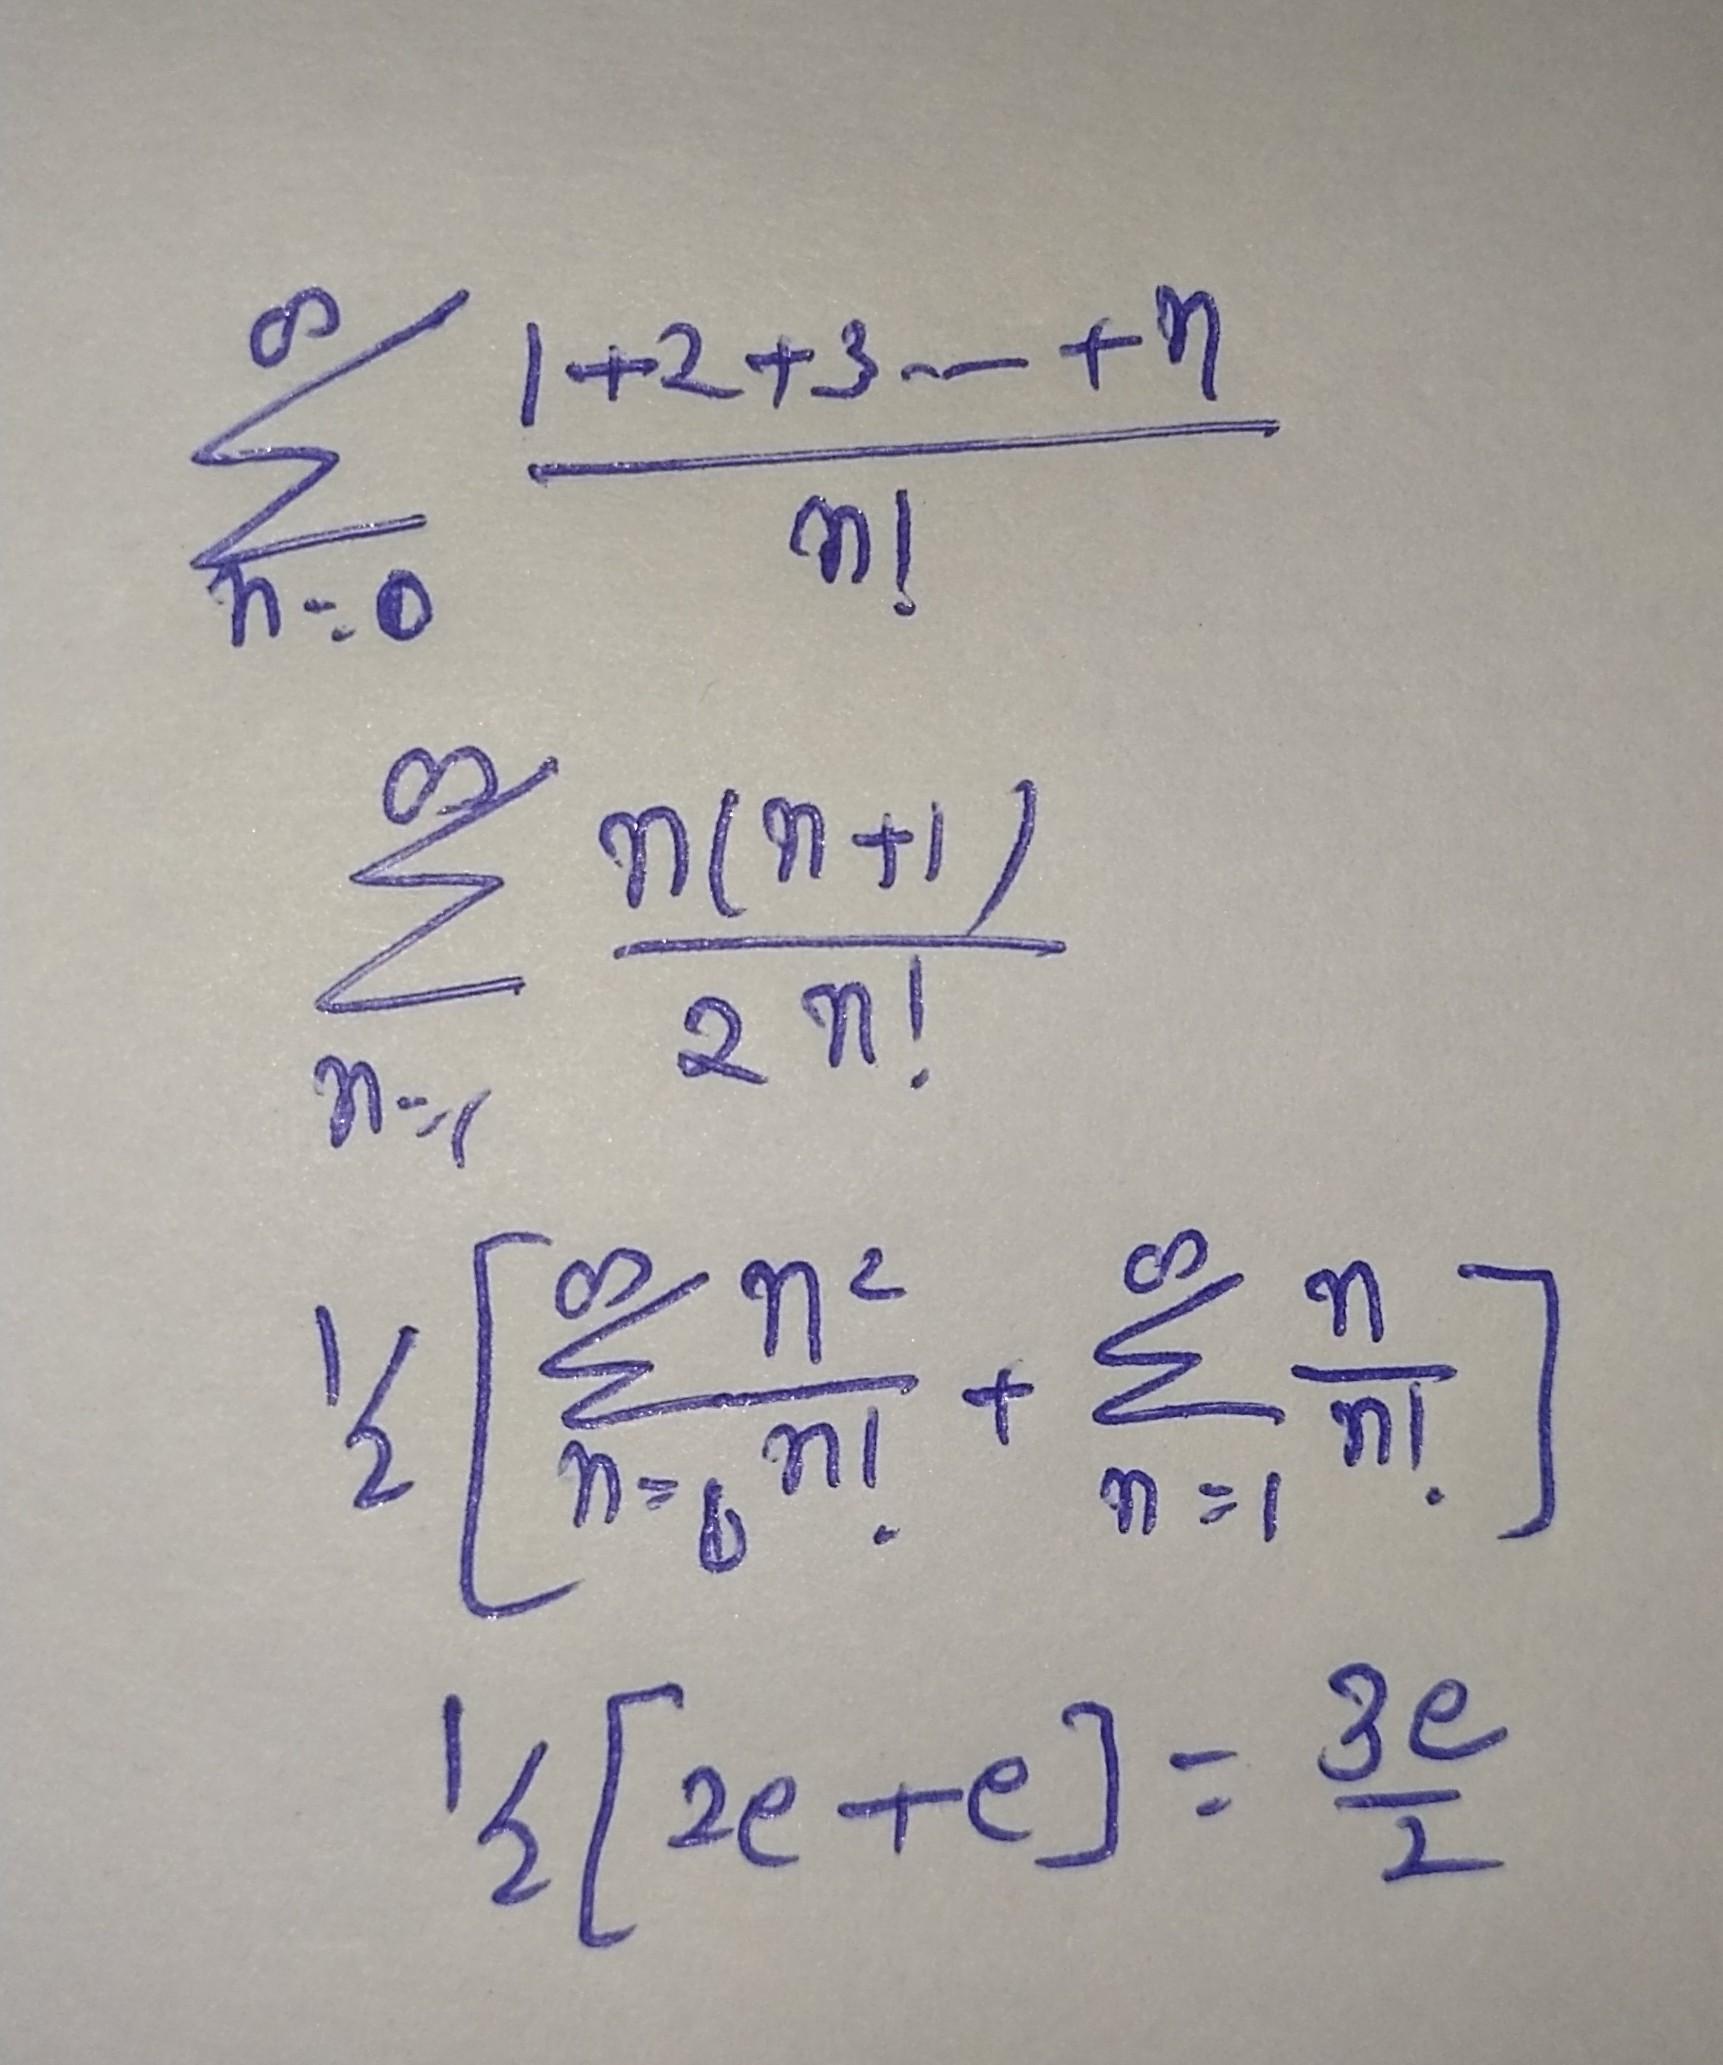 ∞∑n=0 (1+2+3-- — +n)/n!
∞∑n=1 n(n+1)/2n!
1/2 [∞∑n=0 n²/n! + ∞∑n=1 n/n!]
1/2 [2e+e] = 3e/2